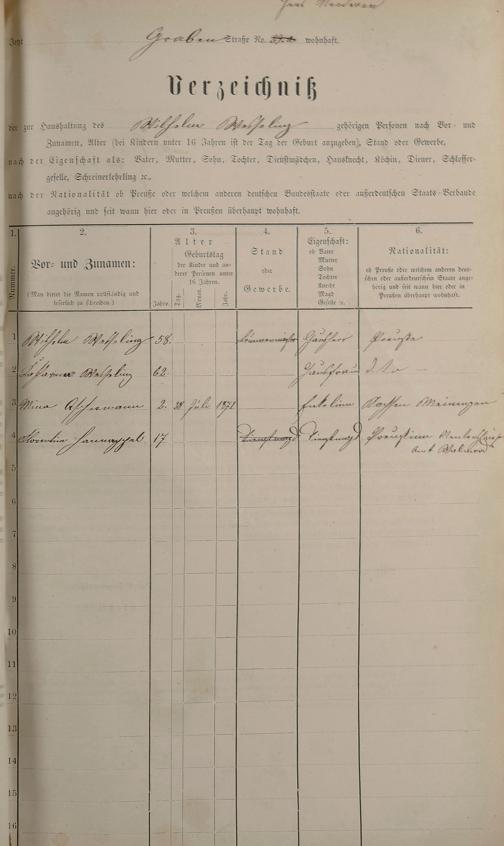 Graben Straße No. wohnhaft.
Verzeichniß
der zur Haushaltung des Wilhelm Weßeling gehörigen Personen nach Vor- und
Zunamen, Alter (bei Kindern unter 16 Jahren ist der Tag der Geburt anzugeben), Stand oder Gewerbe,
nach der Eigenschaft als: Vater, Mutter, Sohn, Tochter, Dienstmädchen, Hausknecht, Köchin, Diener, Schlosser-
geselle, Schreinerlehrling ꝛc.,
nach der Nationalität ob Preuße oder welchem anderen deutschen Bundesstaate oder außerdeutschen Staats-Verbande
angehörig und seit wann hier oder in Preußen überhaupt wohnhaft.
1.
Nummer.
2.
Vor- und Zunamen:
(Man bittet die Namen vollständig und
leserlich zu schreiben.)
3.
Alter
Geburtstag
der Kinder und an-
derer Personen unter
16 Jahren.
Jahre.
Tag.
Monat.
Jahr.
4.
Stand
oder
Gewerbe.
5.
Eigenschaft:
ob Vater
Mutter
Sohn
Tochter
Knecht
Magd
Geselle ꝛc.
6.
Nationalität:
ob Preuße oder welchem anderen deut-
schen oder außerdeutschen Staate ange-
hörig und seit wann hier oder in
Preußen überhaupt wohnhaft.
1 Wilhelm Weßeling 58. Hausherr Preuße
2 Weßeling 62. Hausfrau dto
3 Mina 2. 28 Juli 1871 Enkelin Sachsen Meiningen
4 17. Dienstmagd Dienstmagd Preußin
Amt
5
6
7
8
9
10
11
12
13
14
15
16